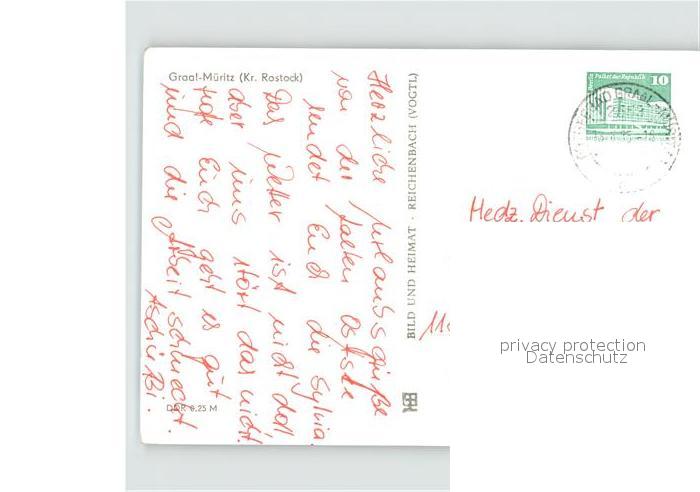 Graal-Müritz (Kr. Rostock)
Herzliche Urlaubsgrüße
von der kalten Ostsee
sendet Euch die Sylvia.
Das Wetter ist nicht doll
aber uns stört das nicht.
Hoffe Euch geht es gut
und die Arbeit schmeckt.
Tschüßi.
DDR 0,25 M
BILD UND HEIMAT · REICHENBACH (VOGTL)
Palast der Republik 10
Medz. Dienst der
privacy protection
Datenschutz